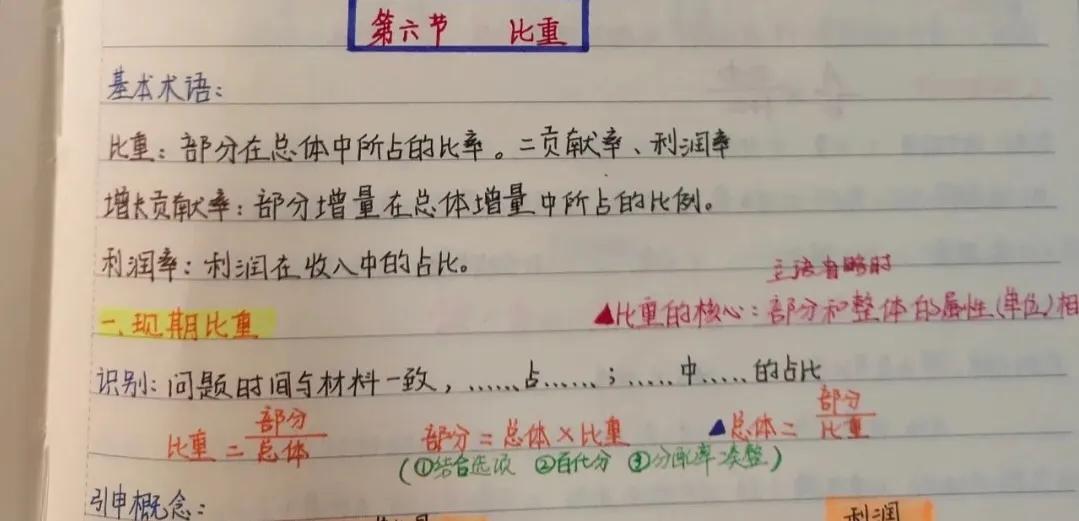 第六节 比重
基本术语:
比重: 部分在总体中所占的比率。二贡献率、利润率
增长贡献率: 部分增量在总体增量中所占的比例。
利润率: 利润在收入中的占比。
主语省略时
一、现期比重
▲比重的核心: 部分和整体的属性(单位)相
识别: 问题时间与材料一致, ……占……; ……中……的占比
比重 = 部分/总体 部分 = 总体 × 比重 ▲总体 = 部分/比重
(①结合选项 ②百化分 ③分配率凑整)
引申概念:
利润